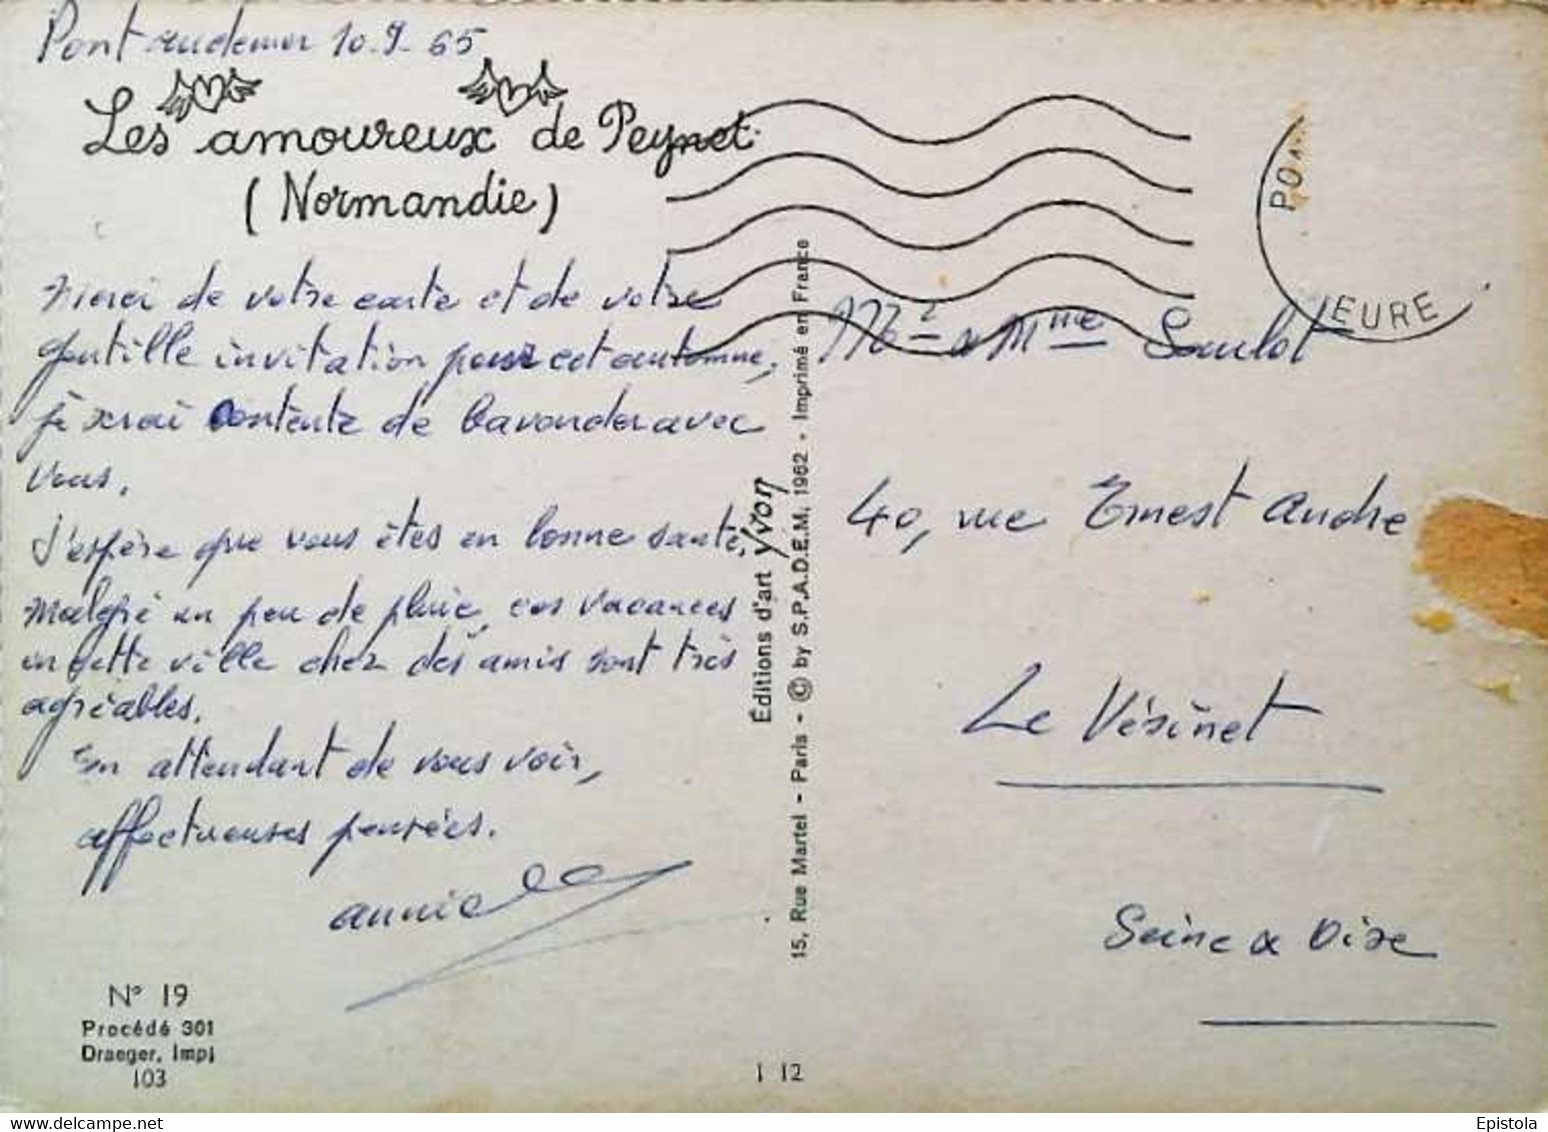 Pont audemer 10-9-65
Les amoureux de Peynet
(Normandie)
Merci de votre carte et de votre
gentille invitation pour cet automne,
je serai contente de bavarder avec
vous.
J'espère que vous êtes en bonne santé.
Malgré un peu de pluie, vacances
en cette ville chez des amis sont très
agréables.
En attendant de vous voir,
affectueuses pensées.
annie
N° 19
Procédé 301
Draeger, Imp
103
1 12
Éditions d'art Yvon
15, Rue Martel - Paris - © by S.P.A.D.E.M. 1962 - Imprimé en France
EURE
Mr & Mme Saulot
40, rue Ernest André
Le Vésinet
Seine & Oise
Epistola